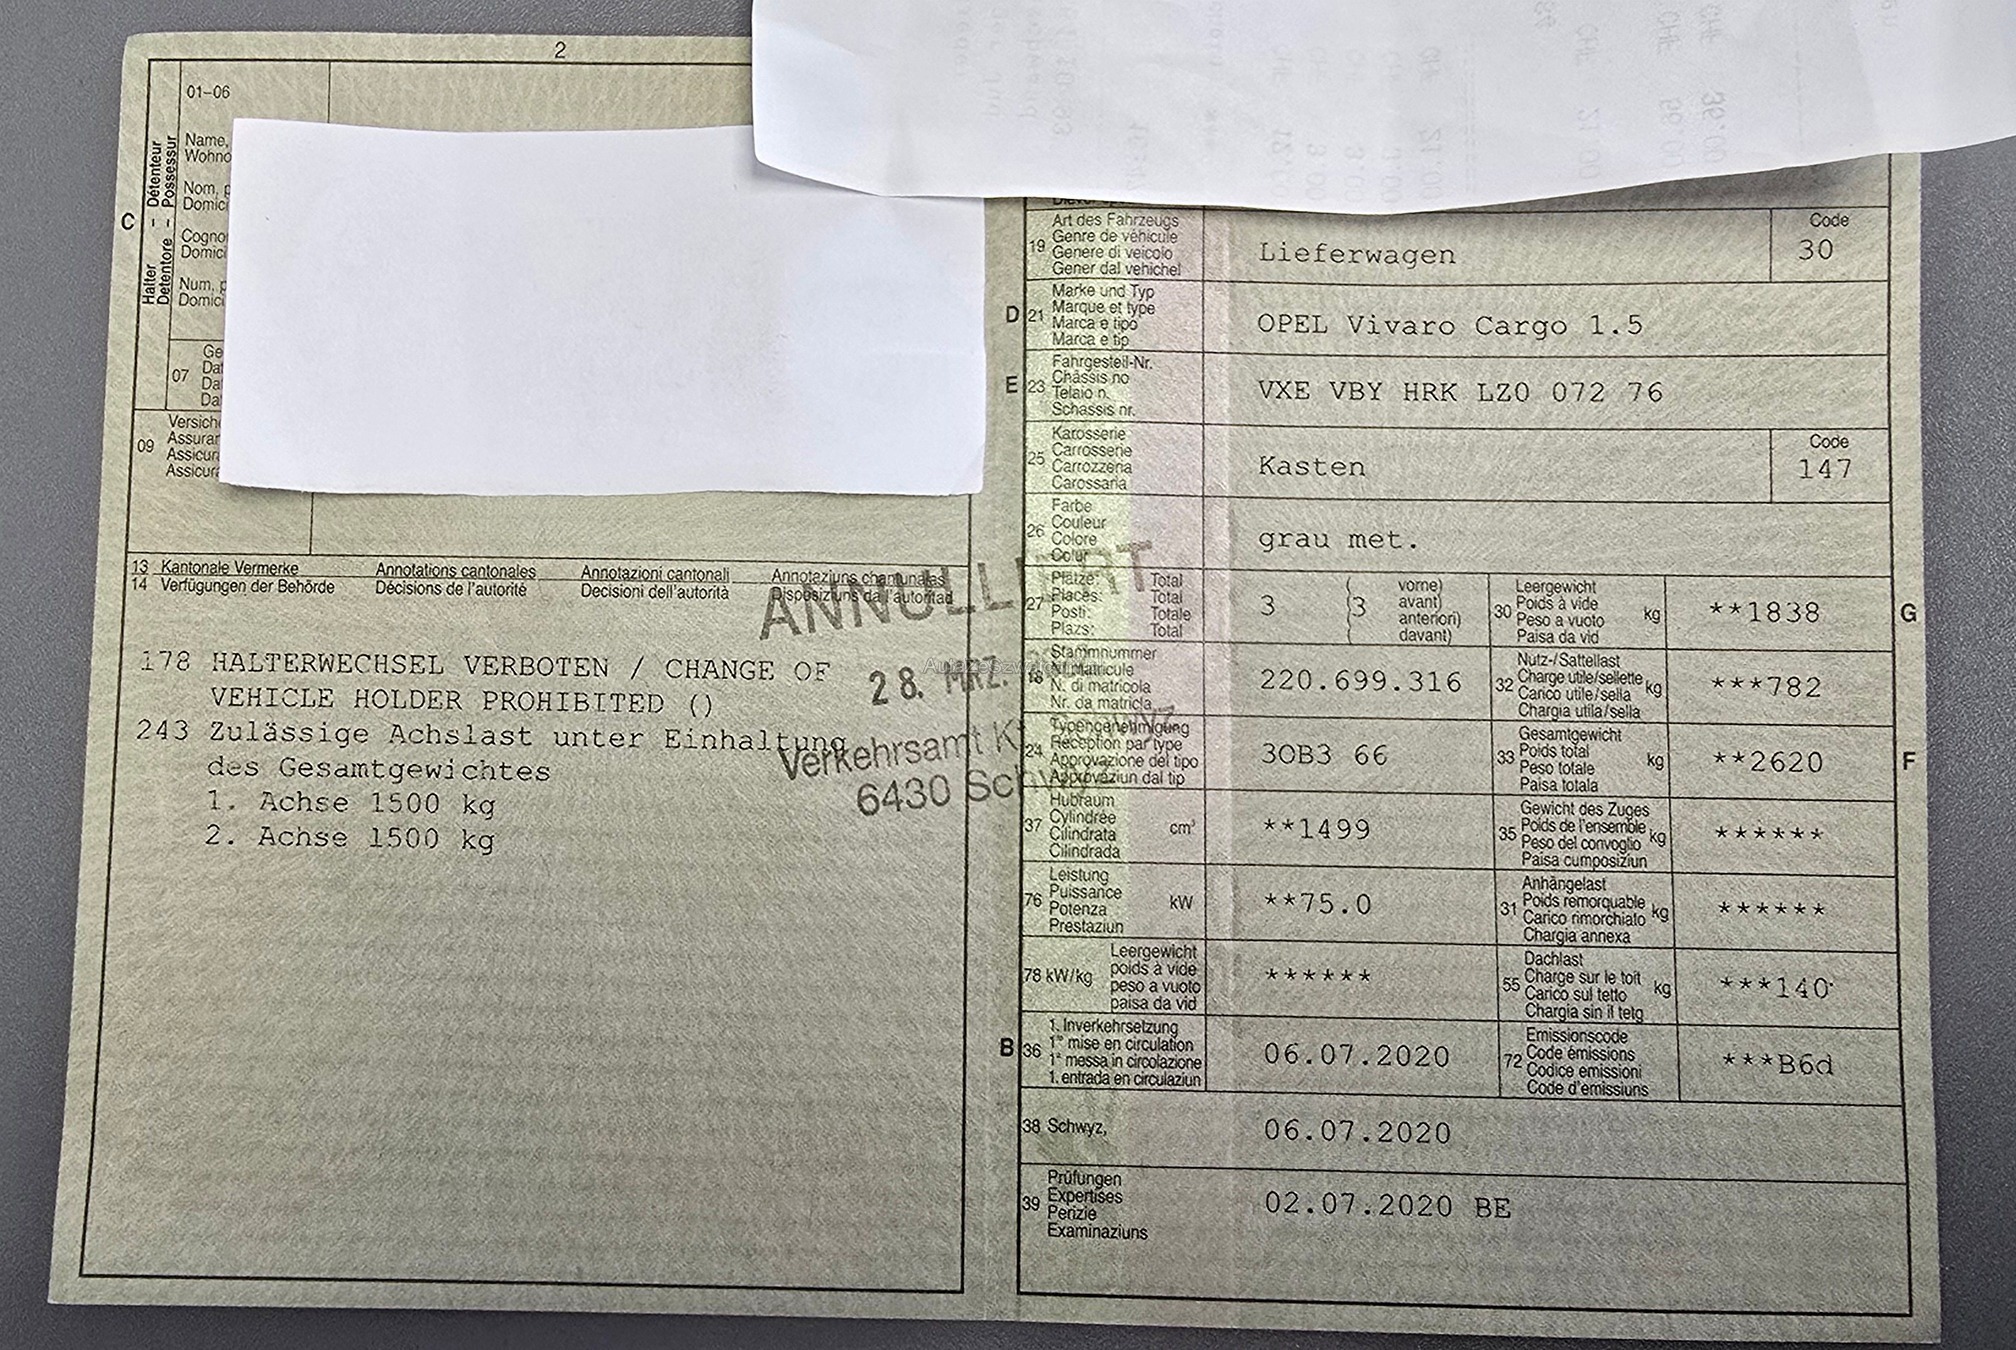 2
01-06
Name,
Wohno
Nom, p
Domici
Cogno
Domici
Num, p
Domici
C
Halter – Détenteur
Detentore – Possessur
07
Ge
Dat
Dat
Da
09
Versich
Assuran
Assicur
Assicura
13 Kantonale Vermerke Annotations cantonales Annotazioni cantonali Annotaziuns chantunalas
14 Verfügungen der Behörde Décisions de l'autorité Decisioni dell'autorità Disposiziuns da l'autoritad
ANNULLIERT
28. MRZ.
Verkehrsamt
6430 Schwyz
178 HALTERWECHSEL VERBOTEN / CHANGE OF
VEHICLE HOLDER PROHIBITED ()
243 Zulässige Achslast unter Einhaltung
des Gesamtgewichtes
1. Achse 1500 kg
2. Achse 1500 kg
19
Art des Fahrzeugs
Genre de véhicule
Genere di veicolo
Gener dal vehichel
Lieferwagen
Code
30
D 21
Marke und Typ
Marque et type
Marca e tipo
Marca e tip
OPEL Vivaro Cargo 1.5
E 23
Fahrgestell-Nr.
Châssis no
Telaio n.
Schassis nr.
VXE VBY HRK LZ0 072 76
25
Karosserie
Carrosserie
Carrozzeria
Carossaria
Kasten
Code
147
26
Farbe
Couleur
Colore
Colur
grau met.
27
Plätze: Total
Places: Total
Posti: Totale
Plazs: Total
3
(3
vorne)
avant)
anteriori)
davant)
30
Leergewicht
Poids à vide
Peso a vuoto
Paisa da vid
kg
**1838
G
18
Stammnummer
N° Matricule
N. di matricola
Nr. da matricla
220.699.316
32
Nutz-/Sattellast
Charge utile/sellette
Carico utile/sella
Chargia utila/sella
kg
***782
24
Typengenehmigung
Réception par type
Approvazione del tipo
Approvaziun dal tip
3OB3 66
33
Gesamtgewicht
Poids total
Peso totale
Paisa totala
kg
**2620
F
37
Hubraum
Cylindrée
Cilindrata
Cilindrada
cm³
**1499
35
Gewicht des Zuges
Poids de l'ensemble
Peso del convoglio
Paisa cumposiziun
kg
******
76
Leistung
Puissance
Potenza
Prestaziun
kW
**75.0
31
Anhängelast
Poids remorquable
Carico rimorchiato
Chargia annexa
kg
******
78 kW/kg
Leergewicht
poids à vide
peso a vuoto
paisa da vid
******
55
Dachlast
Charge sur le toit
Carico sul tetto
Chargia sin il tetg
kg
***140
B 36
1. Inverkehrsetzung
1re mise en circulation
1a messa in circolazione
1. entrada en circulaziun
06.07.2020
72
Emissionscode
Code émissions
Codice emissioni
Code d'emissiuns
***B6d
38 Schwyz,
06.07.2020
39
Prüfungen
Expertises
Perizie
Examinaziuns
02.07.2020 BE